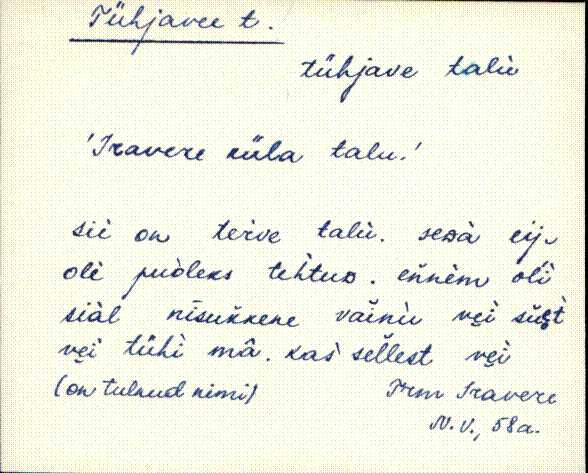 Tühjavee t.
tühjave talù
'Iravere küla talu.'
siè on terve talù. seᴅà eij
olè puòleks tehtuᴅ. ennèm olì
siàl nīsukkene vaìnìu vęi sūęt
vęi tühì mâ. kas sellest vęi
(on tulnud nimi) Trm Iravere
N.V., 58a.